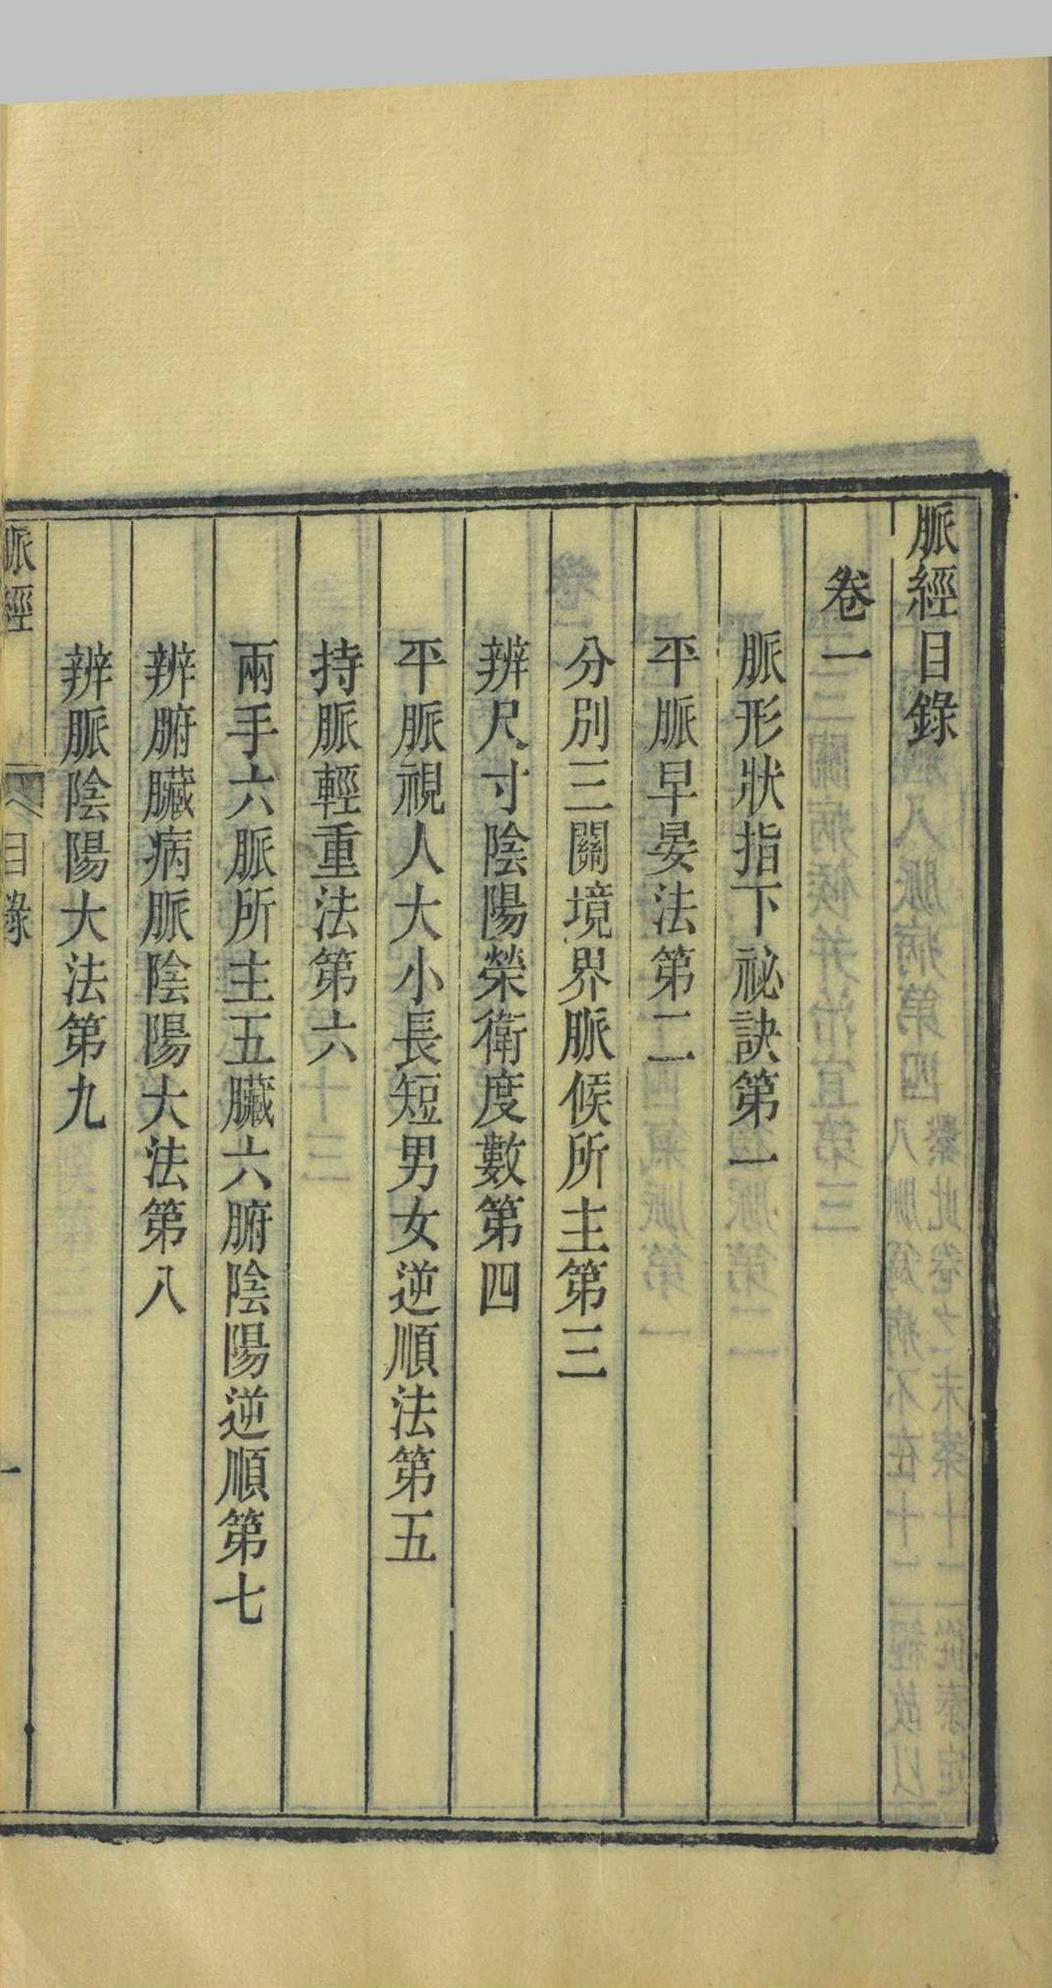 脈經目錄
卷一
脈形狀指下祕訣第一
平脈早晏法第二
分別三關境界脈候所主第三
辨尺寸陰陽榮衛度數第四
平脈視人大小長短男女逆順法第五
持脈輕重法第六
兩手六脈所主五臟六腑陰陽逆順第七
辨腑臟病脈陰陽大法第八
辨脈陰陽大法第九
脈經 目錄 一